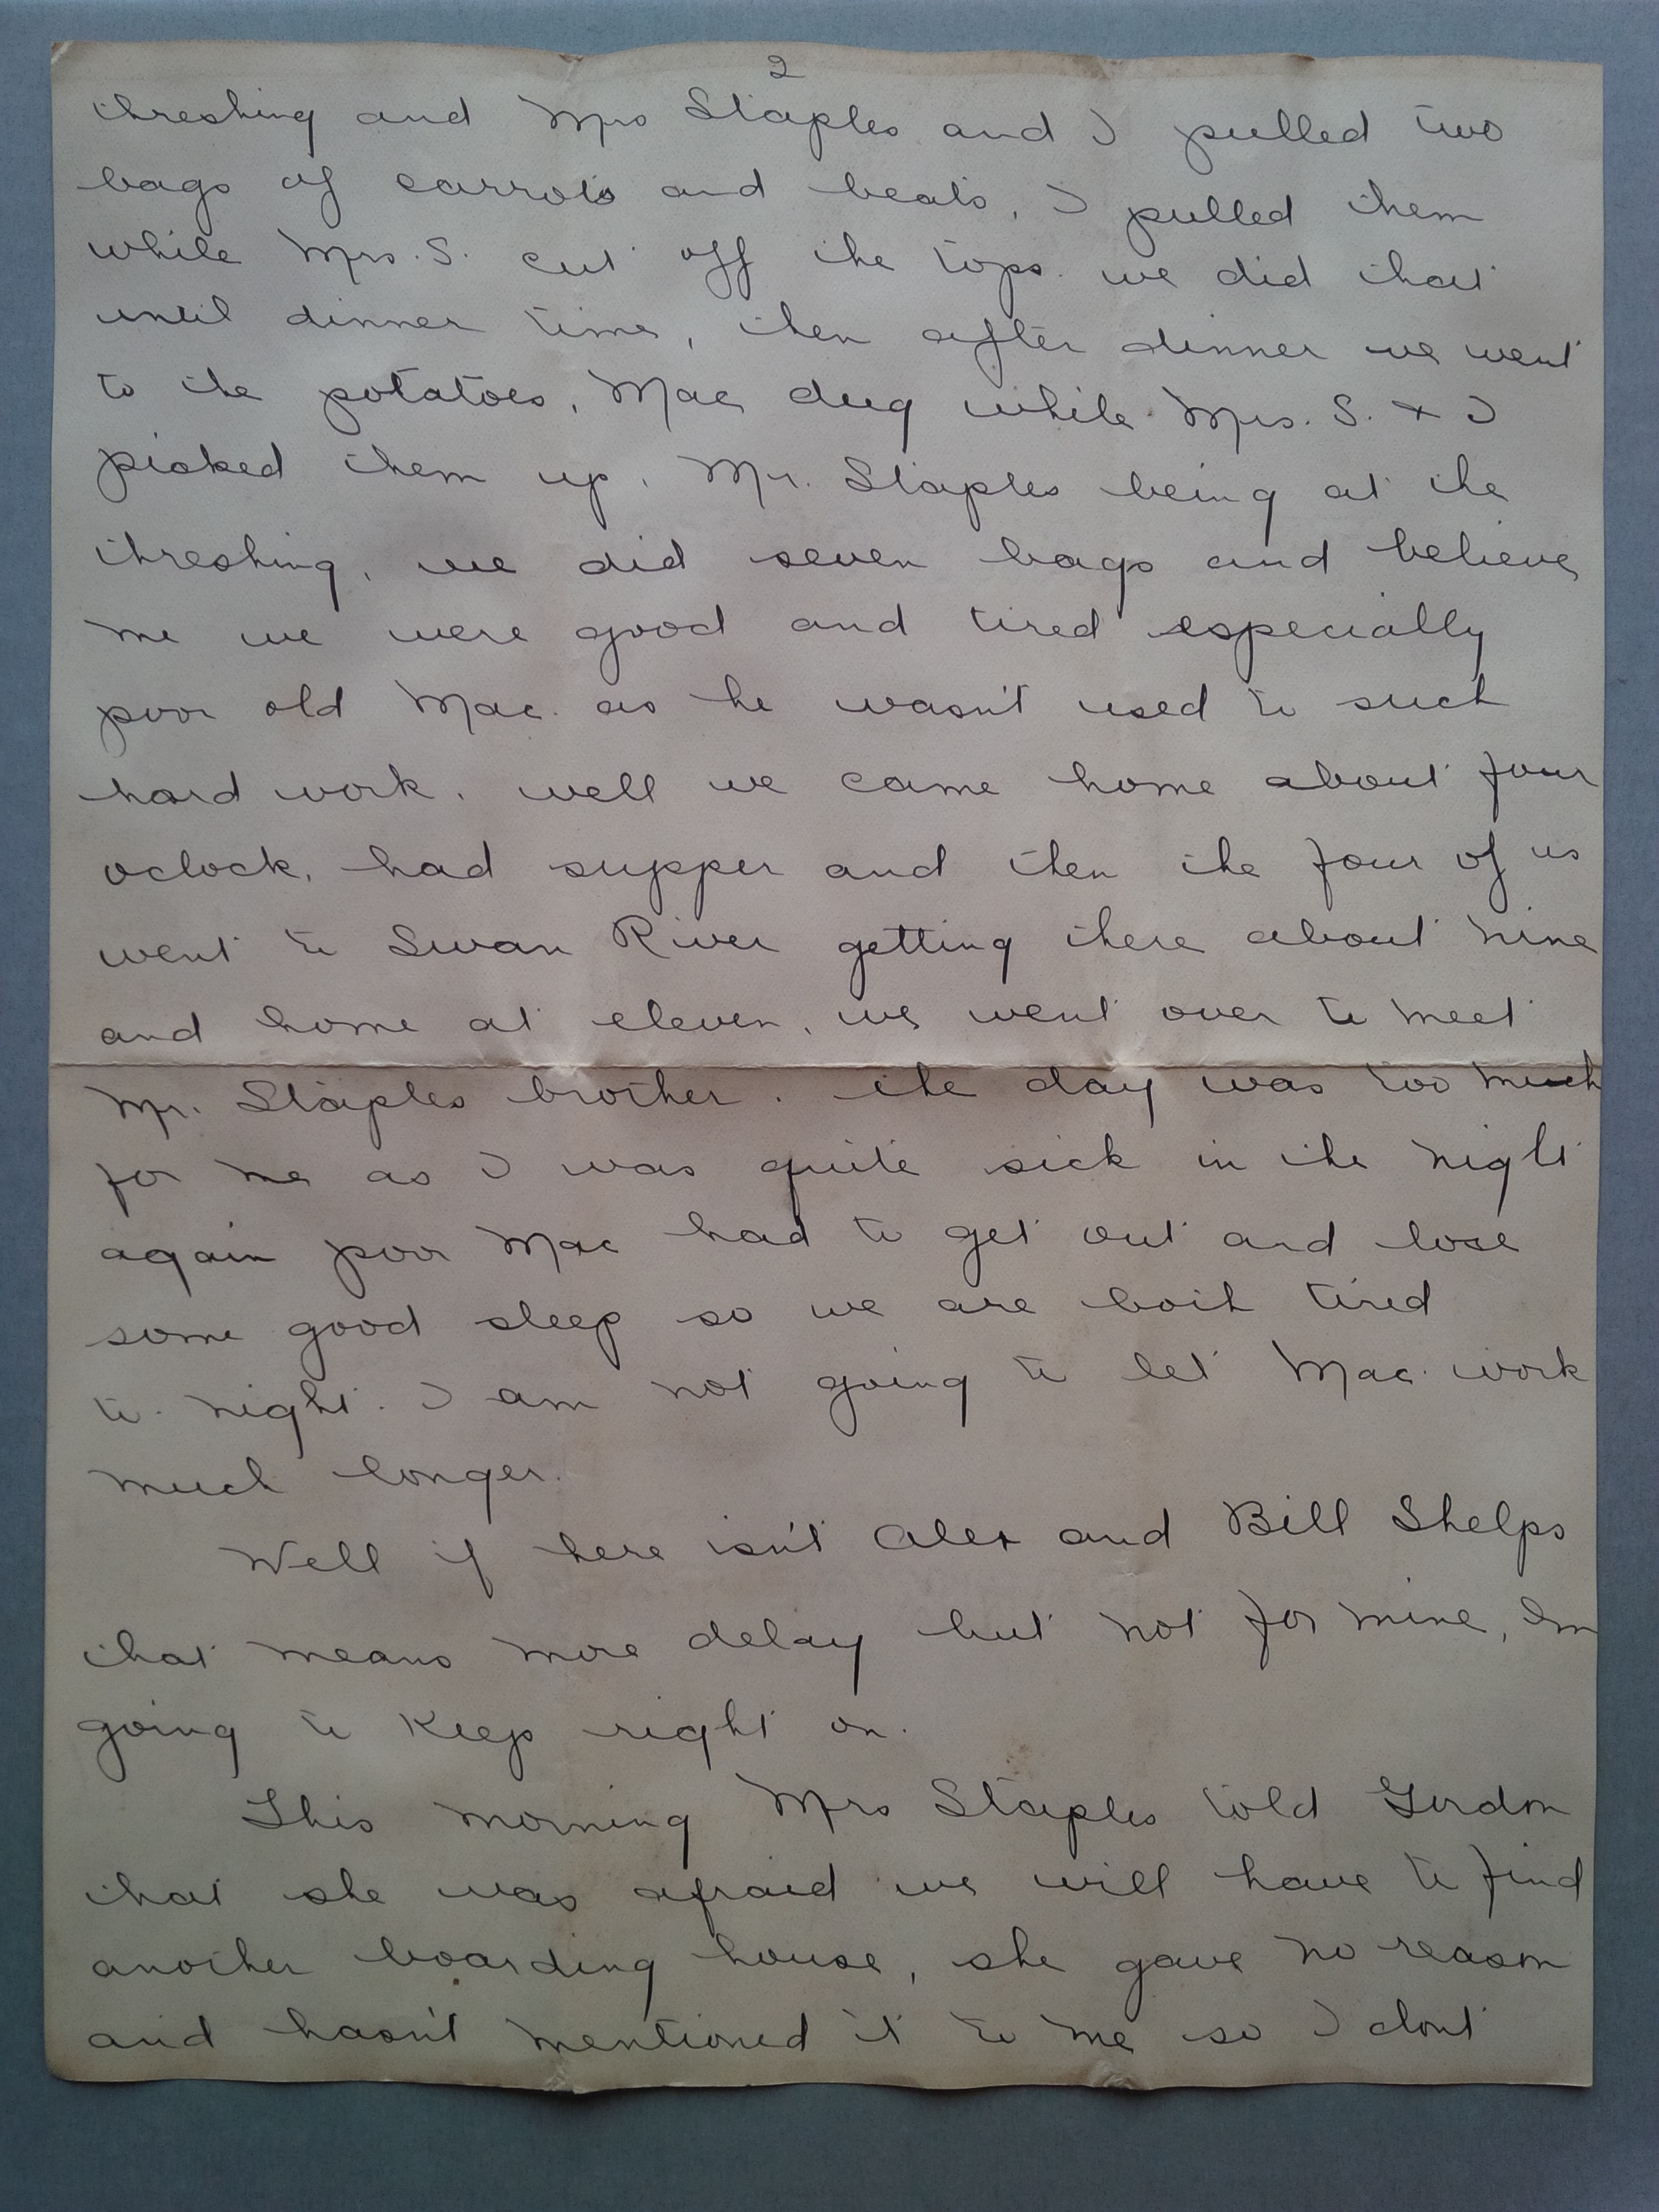 2
threshing and Mrs Staples and I pulled two
bags of carrots and beats, I pulled them
while Mrs. S. cut off the tops. we did that
until dinner time, then after dinner we went
to the potatoes, Mac dug while Mrs. S. + I
picked them up, Mr. Staples being at the
threshing, we did seven bags and believe
me we were good and tired especially
poor old Mac. as he wasn't used to such
hard work. well we came home about four
oclock, had supper and then the four of us
went to Swan River getting there about nine
and home at eleven, we went over to meet
Mr. Staples brother. the day was too much
for me as I was quite sick in the night
again poor Mac had to get out and lose
some good sleep so we are both tired
to-night. I am not going to let Mac. work
much longer.
Well if here isn't Alex and Bill Shelps
that means more delay but not for mine, Im
going to keep right on.
This morning Mrs Staples told Gordon
that she was afraid we will have to find
another boarding house, she gave no reason
and hasn't mentioned it to me so I dont